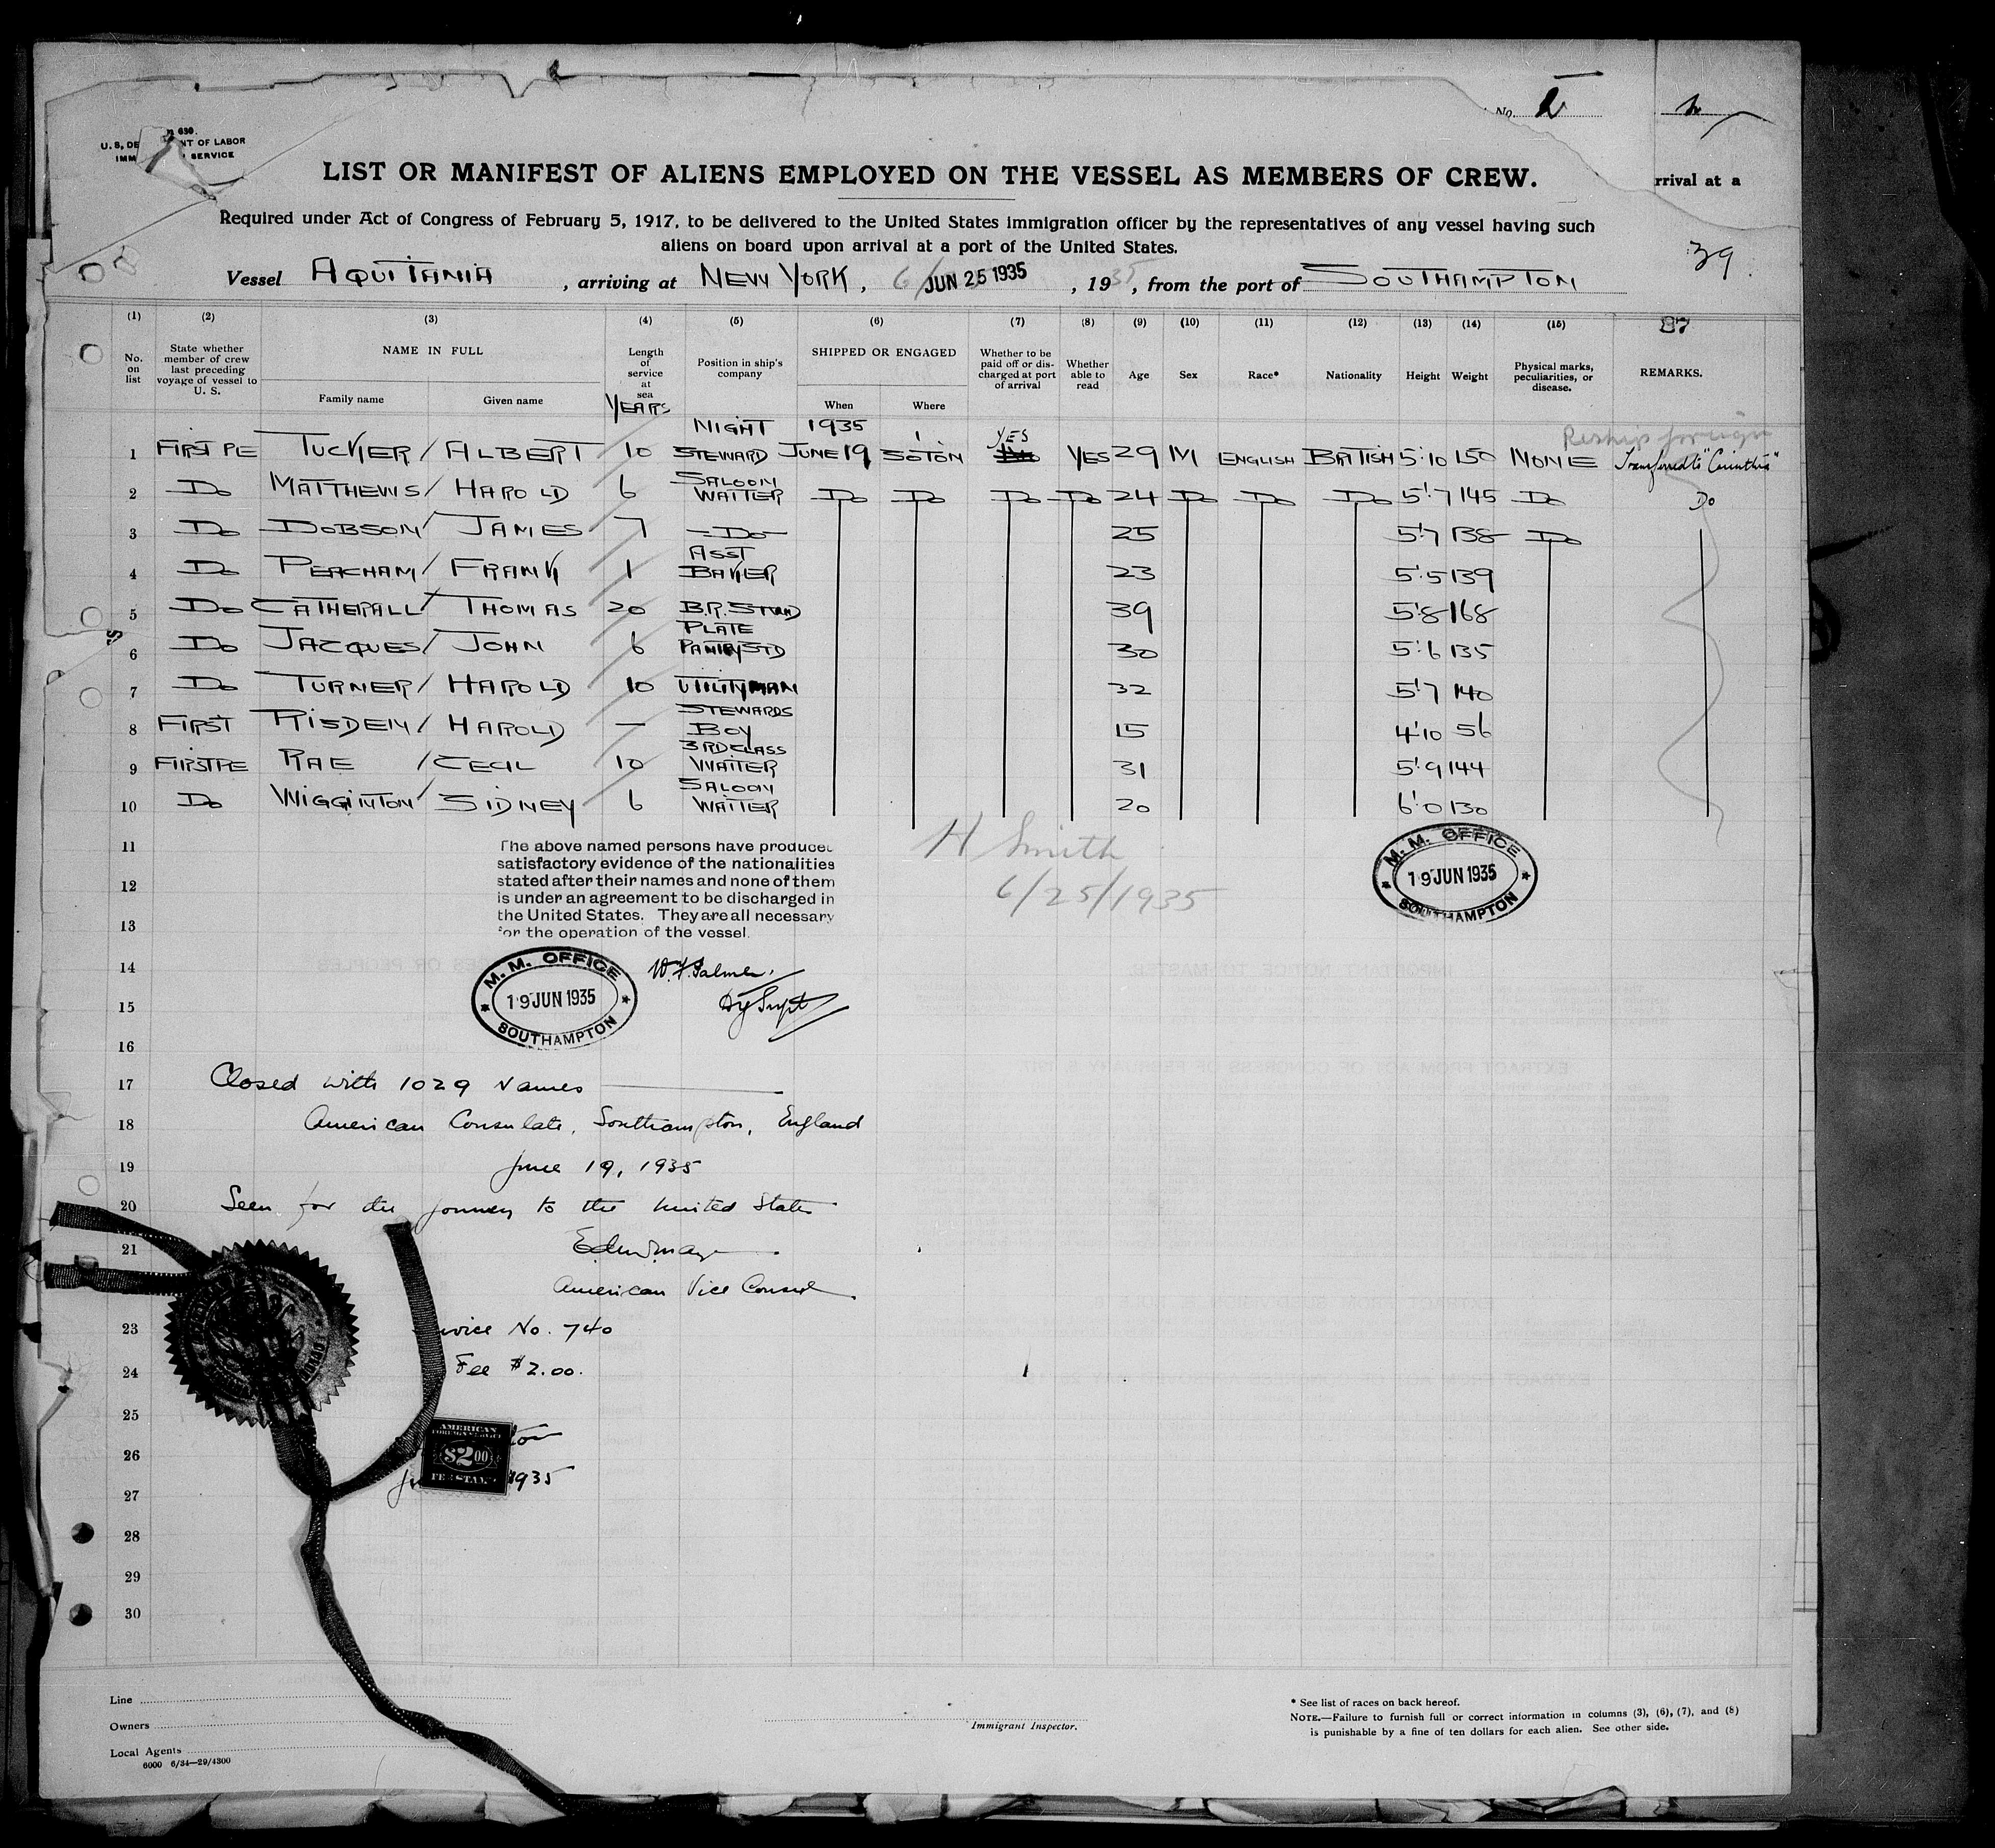 No. 2
630.
U. S. DE NT OF LABOR
IMM SERVICE
LIST OR MANIFEST OF ALIENS EMPLOYED ON THE VESSEL AS MEMBERS OF CREW.
rrival at a
Required under Act of Congress of February 5, 1917, to be delivered to the United States immigration officer by the representatives of any vessel having such
aliens on board upon arrival at a port of the United States.
39
Vessel AQUITANIA, arriving at NEW YORK, 6/ JUN 25 1935, 1935, from the port of SOUTHAMPTON
(1) (2) (3) (4) (5) (6) (7) (8) (9) (10) (11) (12) (13) (14) (15) 87
No. on list State whether member of crew last preceding voyage of vessel to U. S. NAME IN FULL Family name Given name Length of service at sea YEARS Position in ship's company SHIPPED OR ENGAGED When Where Whether to be paid off or discharged at port of arrival Whether able to read Age Sex Race* Nationality Height Weight Physical marks, peculiarities, or disease. REMARKS.
NIGHT 1935 YES Reship foreign
1 FIRST PE TUCKER / ALBERT 10 STEWARD JUNE 19 SOTON No YES 29 M ENGLISH BRITISH 5'10 150 NONE Transferred to "Carinthia"
2 Do MATTHEWS / HAROLD 6 SALOON WAITER Do Do Do Do 24 Do Do Do 5'7 145 Do Do
3 Do DOBSON / JAMES 7 Do 25 5'7 138 Do
4 Do PEACHAM / FRANK 1 ASST BAKER 23 5'5 139
5 Do CATHERALL / THOMAS 20 B.R. STWD 39 5'8 168
6 Do JACQUES / JOHN 6 PLATE PANTRY STD 30 5'6 135
7 Do TURNER / HAROLD 10 UTILITYMAN 32 5'7 140
8 FIRST RISDEN / HAROLD — STEWARDS BOY 15 4'10 56
9 FIRST PE RAE / CECIL 10 3RD CLASS WAITER 31 5'9 144
10 Do WIGGINTON / SIDNEY 6 SALOON WAITER 20 6'0 130
11
12
13
The above named persons have produced
satisfactory evidence of the nationalities
stated after their names and none of them
is under an agreement to be discharged in
the United States. They are all necessary
for the operation of the vessel.
H Smith
6/25/1935
M. M. OFFICE
19 JUN 1935
SOUTHAMPTON
14
15
16
M. M. OFFICE
19 JUN 1935
SOUTHAMPTON
W. F. Palmer.
Dy Supt
17 Closed with 1029 names
18 American Consulate, Southampton, England
19 June 19, 1935
20 Seen for the journey to the United States
21
American Vice Consul.
23 vice No. 740
24 Fee $2.00.
25
AMERICAN
FOREIGN SERVICE
$2.00
FEE STAMP
26
1935
27
28
29
30
Line
Owners
Local Agents
6000 6/34—29/4300
Immigrant Inspector.
* See list of races on back hereof.
NOTE.—Failure to furnish full or correct information in columns (3), (6), (7), and (8)
is punishable by a fine of ten dollars for each alien. See other side.